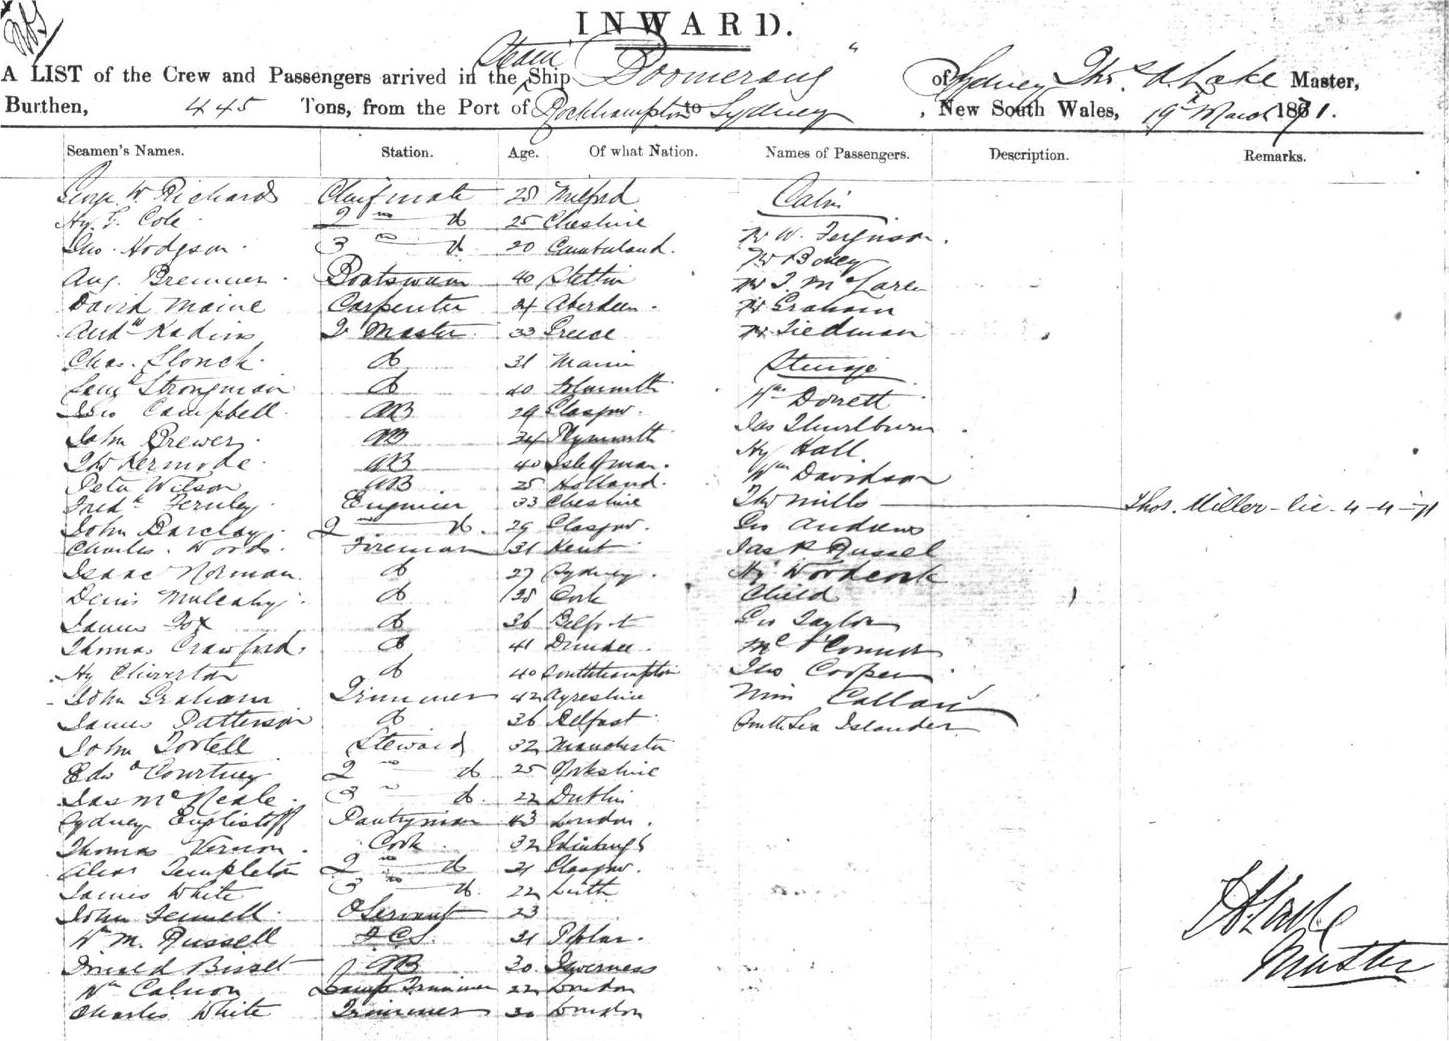 INWARD.
A LIST of the Crew and Passengers arrived in the Steam Ship Boomerang of Sydney Thos. A. Lake Master,
Burthen, 445 Tons, from the Port of Rockhampton to Sydney, New South Wales, 19th March 1871.
Seamen's Names. Station. Age. Of what Nation. Names of Passengers. Description. Remarks.
George W Richards Chief mate 28 Milford Cabin
Hy. F. Cole 2nd do 25 Cheshire
Jno. Hodgson 3 do 20 Cumberland. Mr W. Ferguson.
Aug. Bremner Boatswain 40 Stettin Mr
Mr J. McLaren
David Maine Carpenter 24 Aberdeen. Mr Graham
Andw Q Master 33 Greece Mr Tiedman
Chas. do 31 Steerage
Saml Strongman do 40
Wm Dorrett
Jno Campbell AB 29 Glasgow. Jas Thurlburn
John Brewer AB 34 Plymouth Hy Hall
Thos Kermode AB 40 Isle of man. Wm Davidson
Peter Wilson AB 25 Holland.
Fredk Fernley Engineer 33 Cheshire Thos Mills Thos. Miller - lic. 4-4-71
John Barclay 2nd do. 29 Glasgow. Geo Andrews
Charles Woods. Fireman 31 Kent Jas R Russel
Isaac Norman do 27 Sydney. Hy Woodcock
Denis Mulcahy. do 28 Cork Child
James Fox do 36 Belfast Geo Taylor
Thomas Crawford. do 41 Dundee. Mc O'Connor
Hy Chiverton do 40 Southhampton Thos Cooper
John Graham Trimmer 42 Ayreshire Miss Callan
James Patterson do 36 Belfast South Sea Islander
John Tortell Steward 32 Manchester
Edwd Courtney 2nd do 25 Yorkshire
Jas McNeale. 3 do. 22 Dublin
Sydney Pantryman 43 London.
Thomas Vernon. Cook 32 Edinburgh
Alexr Templeton 2nd do 21 Glasgow.
James White 3 do. 22 Leith
John Fennell OServant 23
Wm M. Russell 31 Poplar.
Donald Bisset AB 30 Inverness
Wm Lamp Trimmer 22 London
Charles White Trimmer 30 London
T A Lake
Master